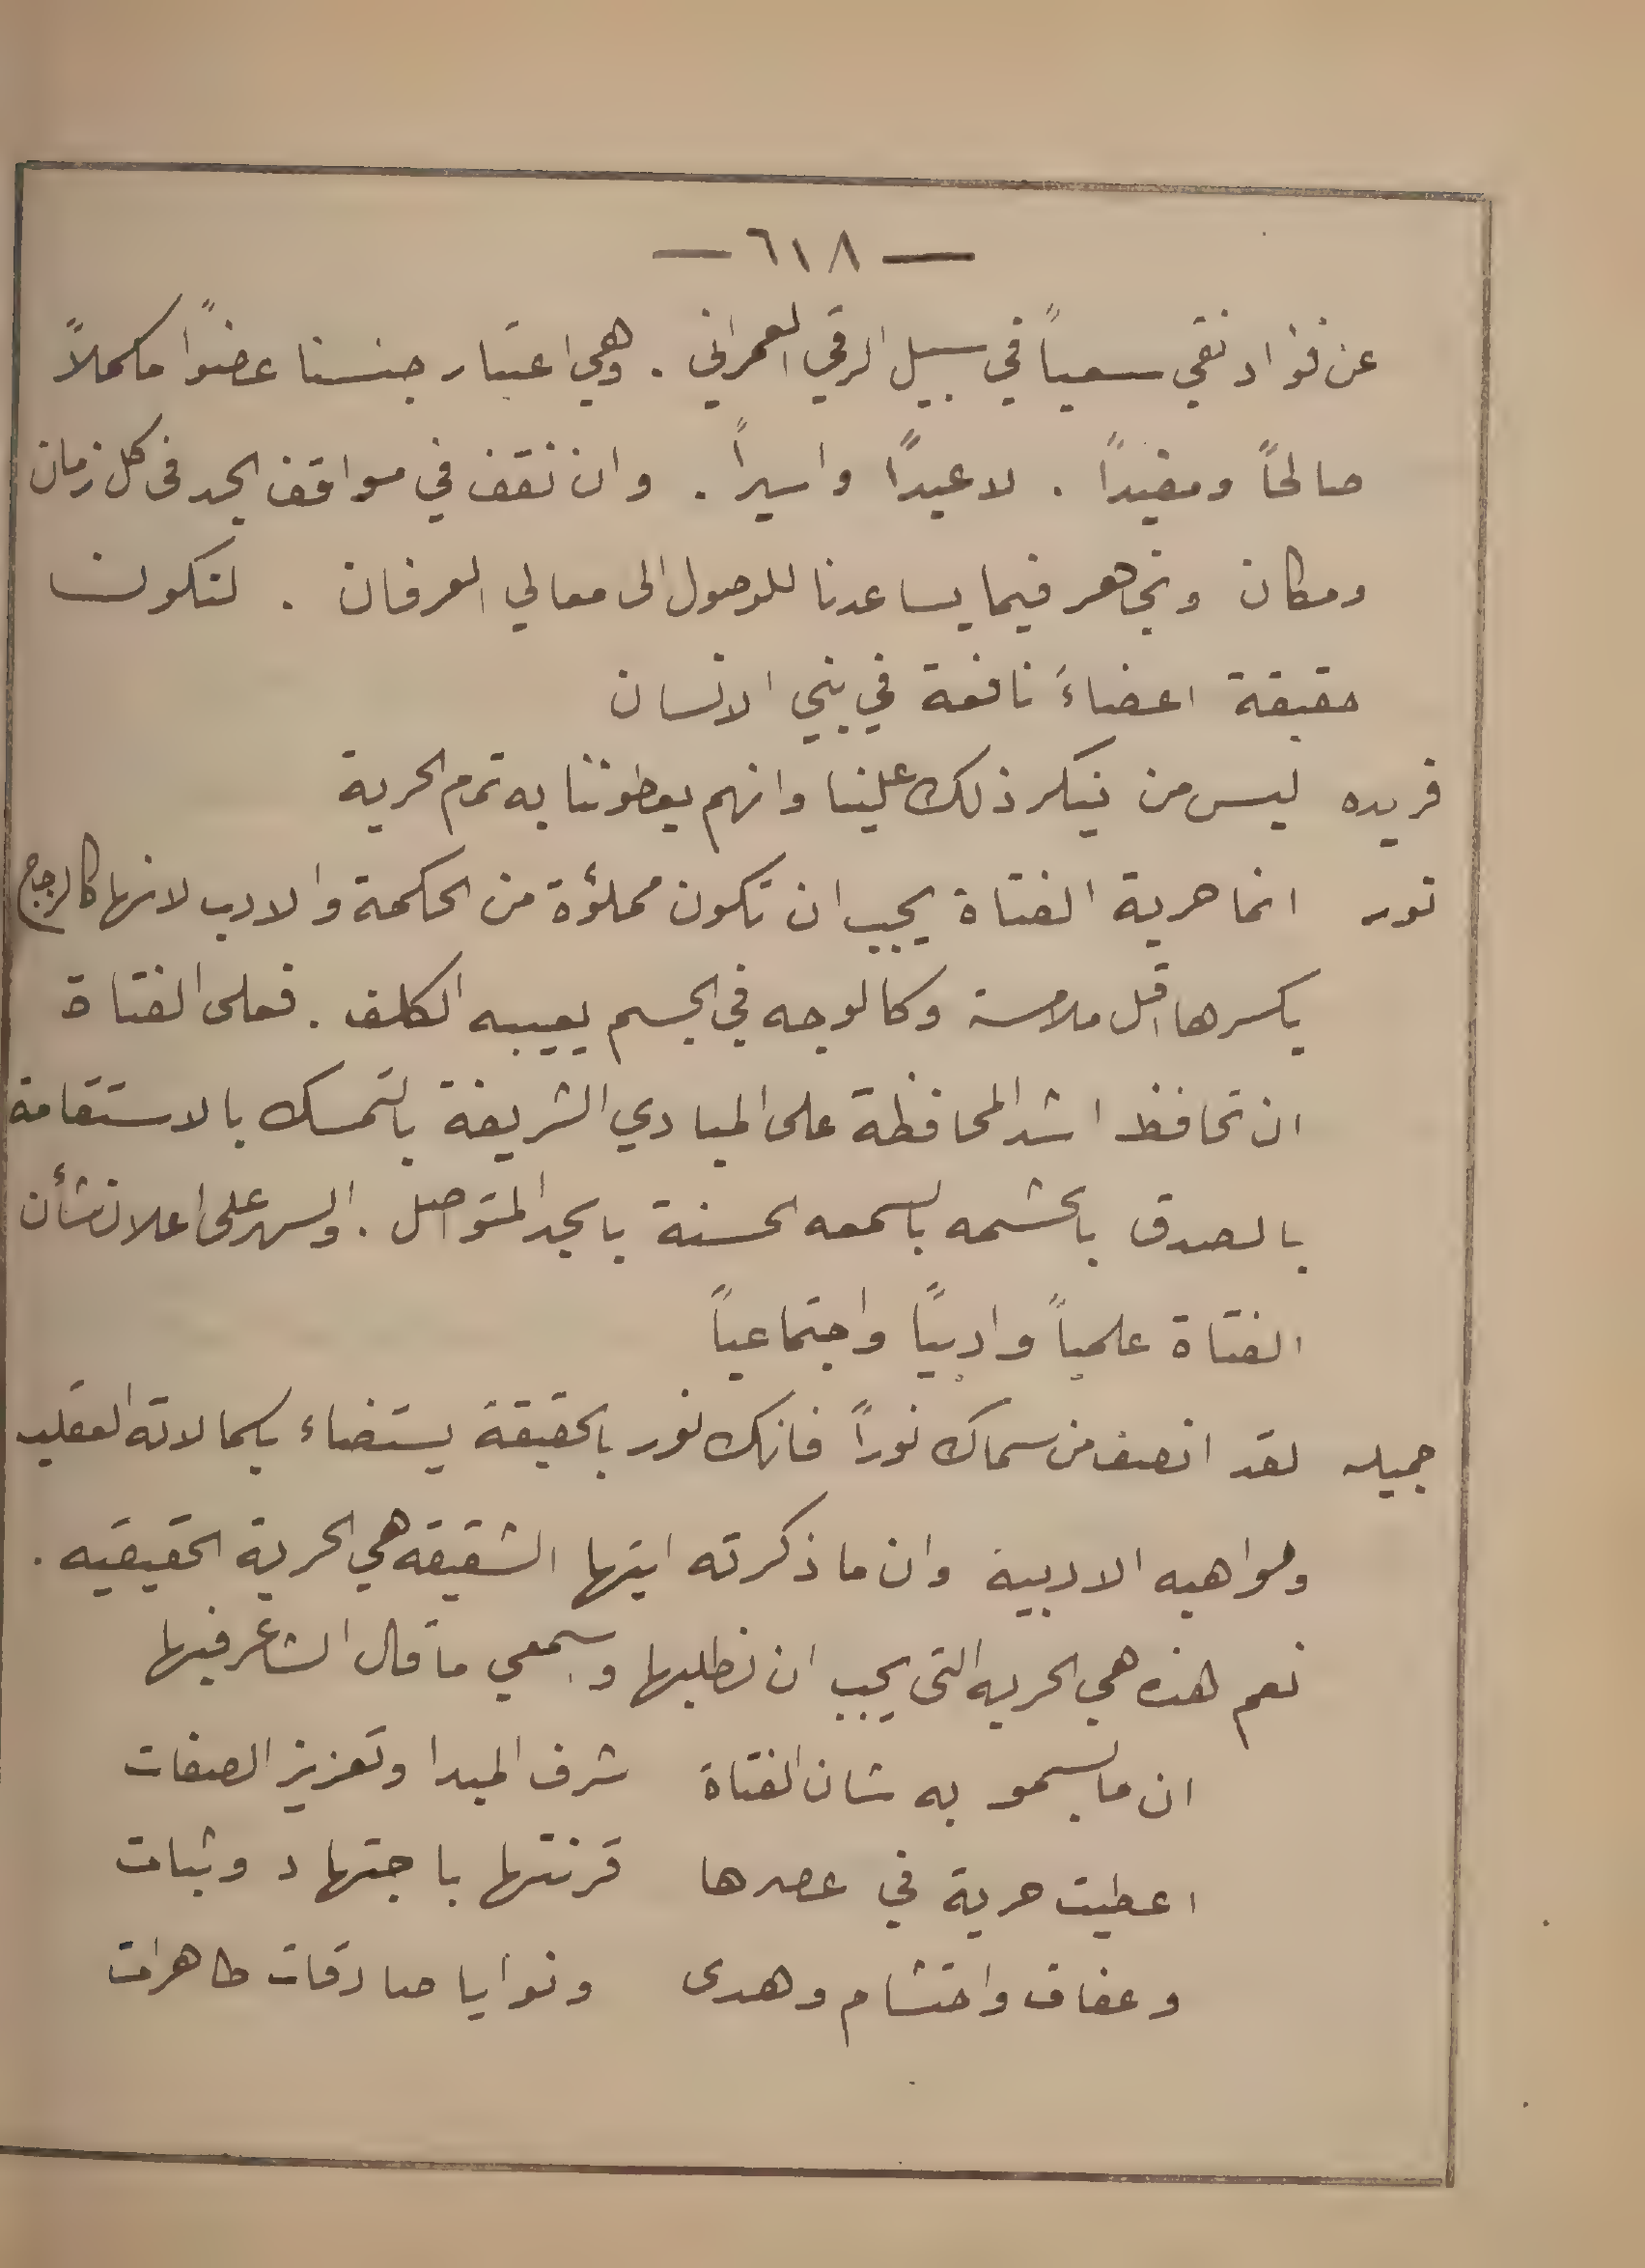 — ٦١٨ —
عن فؤاد نقي سعياً في سبيل الرقي العمراني . وهي اعتبار جنسنا عضوًا مكملاً
صالحًا ومفيدًا . لا عبدًا واسيراً . وان نقف في مواقف الجد في كل زمان
ومكان ونجاهر فيما يساعدنا للوصول الى معالي العرفان . لنكون
حقيقة اعضاءً نافعة في بني الانسان
فريده ليس من ينكر ذلك علينا وانهم يعطوننا به تمام الحرية
نور انما حرية الفتاة يجب ان تكون مملؤة من الحكمة والادب لانها كالزجاج
يكسرها اقل ملامسة وكالوجه في الجسم يعيبه الكلف . فعلى الفتاة
ان تحافظ اشد المحافظة على المبادي الشريفة بالتمسك بالاستقامة
بالصدق بالحشمه بالسمعه الحسنة بالجد المتواصل . والسهر على اعلان شأن
الفتاة علمياً وادبيًا واجتماعياً
جميله لقد انصف من سماك نوراً فانك نور بالحقيقة يستضاء بكمالاته العقليه
ومواهبه الادبية وان ما ذكرته ايتها الشقيقة هي الحرية الحقيقيه .
نعم هذه هي الحريه التي يجب ان نطلبها واسمعي ما قال الشاعر فيها
ان ما يسمو به شان الفتاة شرف المبدا وتعزيز الصفات
اعطيت حرية في عصرها قرنتها باجتهاد وثبات
وعفاف واحتشام وهدى ونوايا صادقات طاهرات